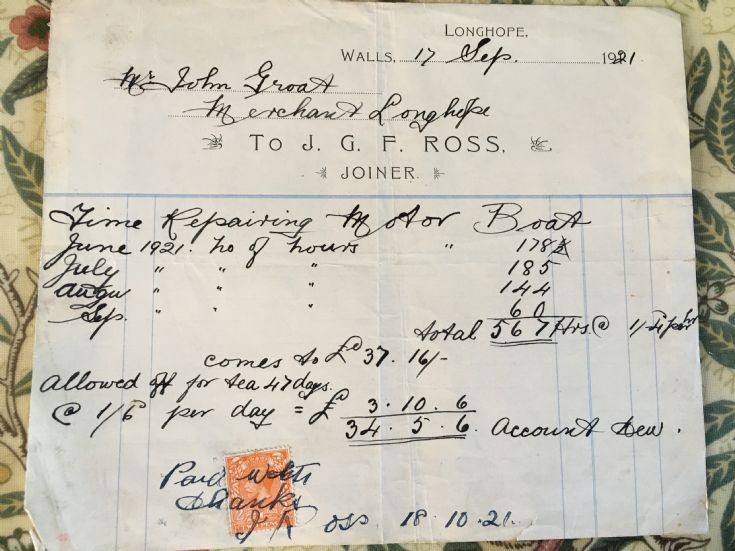 LONGHOPE,
WALLS, 17 Sep. 1921.
Mr John Groat
Merchant Longhope
TO J. G. F. ROSS,
JOINER.
Time Repairing Motor Boat
June 1921. no of hours " 178
July " " " 185
augu " " " 144
Sep. " " " 60
total 567 Hrs. @ 1/4 per hr
comes to £ 37. 16/-
allowed off for tea 47 days.
@ 1/6 per day = £ 3. 10. 6
34. 5. 6. account dew.
Paid with
thanks
J R oss 18.10.21.